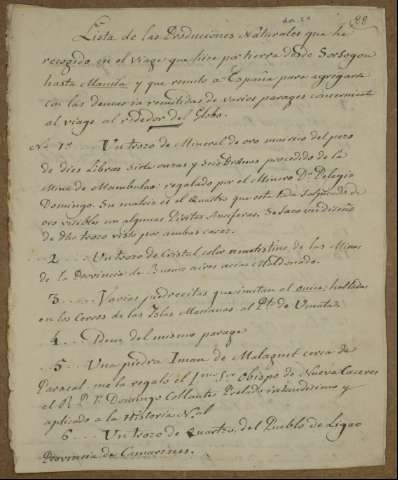 88
Lista de las Producciones Naturales que he
recogido en el viage que hice por tierra desde Sorsogon
hasta Manila y que remito a España para agregarse
con las demas remitidas de varios parages
al viage al rededor del Globo.
No. 1o. Un trozo de Mineral de oro macizo del peso
de diez libras siete onzas y seis procedido de la
Mina de Mambulao; regalado por el Minero Dn. Pelagio
Domingo. Su matriz es el Quartzo que esta todo de
oro visibles con algunas Piritas Auriferas. Se saco un diseño
de dho trozo visto por ambas caras.
2 Un trozo de Cristal color amatistino, de las Minas
de la Provincia de Buenos aires Maldonado.
3 Varias piedrecitas que imitan el onice, halladas
en los Cerros de las Yslas Marianas al Pto. de Umata.
4 Ydem del mismo parage
5 Una piedra Iman de Malaguit cerca de
Paracal, me la regalo el Yllmo. Sor. Obispo de Nueva Caceres
el R. P. F. Domingo Collantes Prelado y
aplicado a la Historia Nal.
6 Un trozo de Quartzo, del Pueblo de Ligao
Provincia de Camarines.